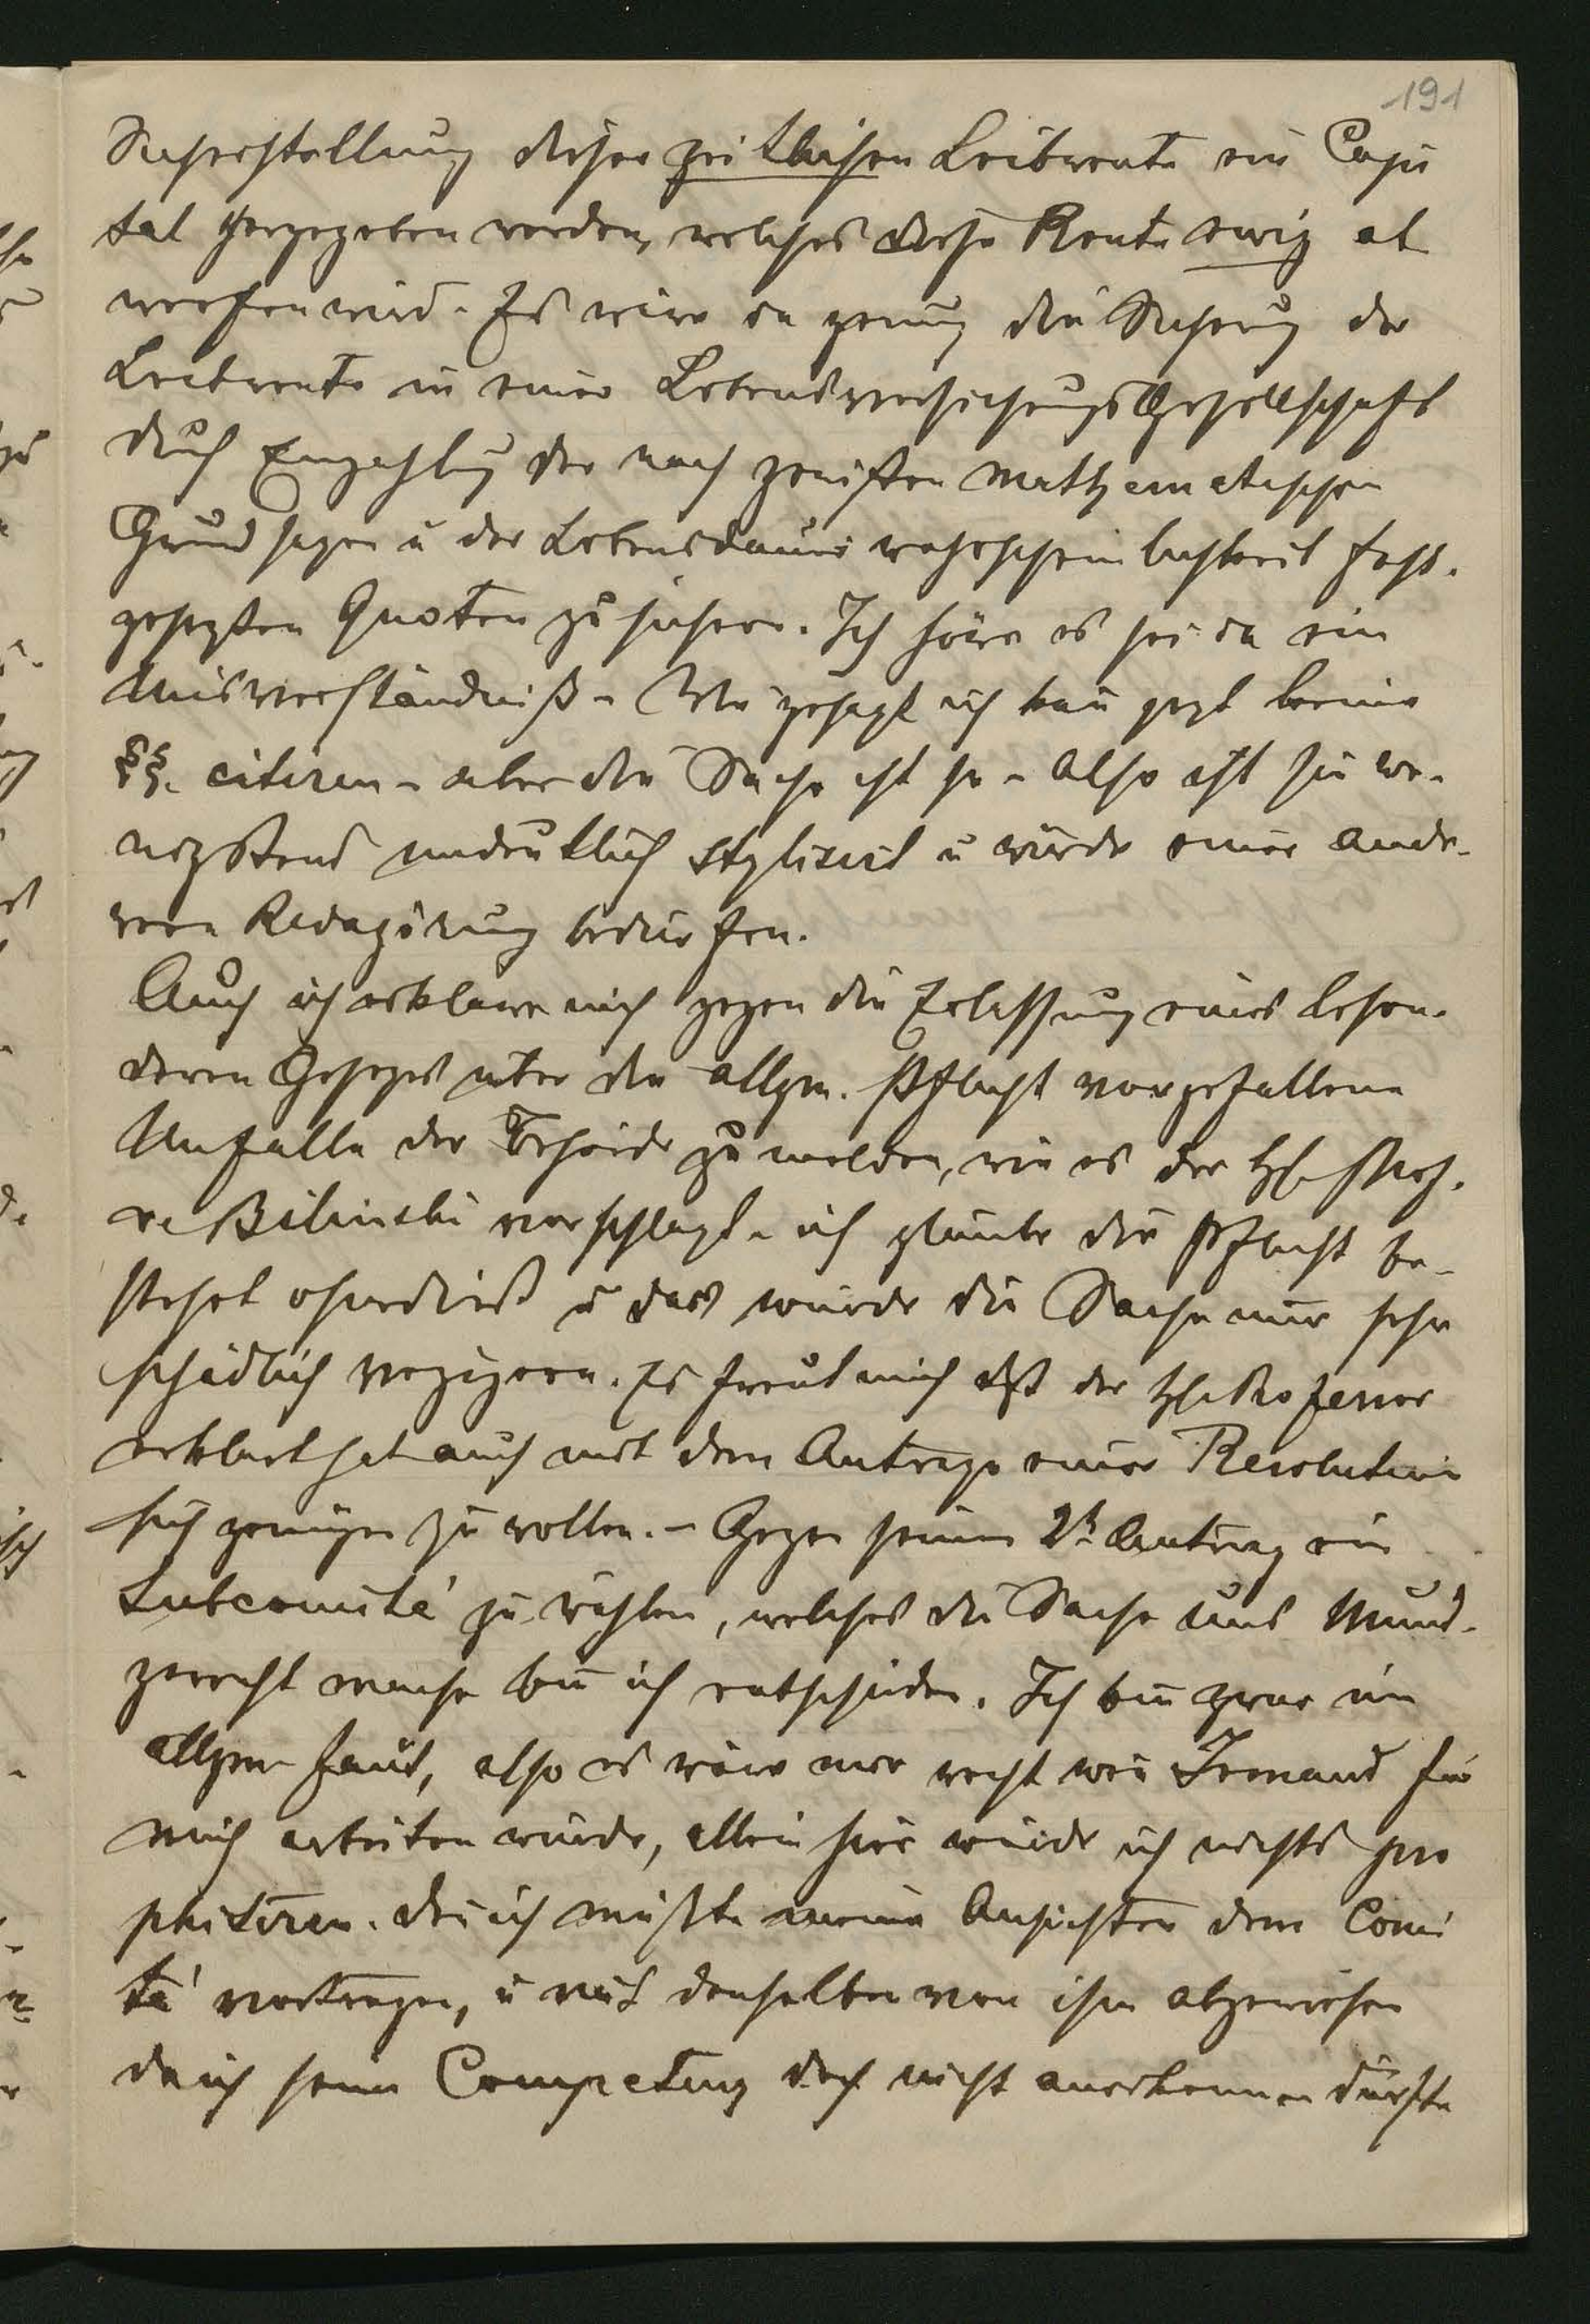 191
Sicherstellung dieser zeitlichen Leibrente ein Capi
tal hergegeben werden, welches diese Rente ewig ab
werfen wird. Es wäre da genug die Sicherung der
Leibrente in einer Lebensversicherungs Gesellschaft
durch Einzahlung der nach gewissen mathematischen
Grundsäzen u der Lebensdauer wahrscheinlichkeit fest-
gesezten Quoten zu sichern. Ich höre es sei da ein
Misverständniß – Wie gesagt ich kan jezt keine
§§. citiren – aber die Sache ist so – also ist sie we-
nigstens undeutlich stylisirt u würde einer ande-
ren Redagirung bedürfen.
Auch ich erkläre mich gegen die Erlassung eines beson-
deren Gesezes über die allgm. Pflicht vorgefallene
Unfälle der Behörde zu melden, wie es der H. Prof.
v Bilinski vorschlagt – ich glaube die Pflicht be-
stehet ohnedieß u das würde die Sache nur sehr
schädlich verzögern. Es freut mich daß der H. Professor
erklärt hat auch mit dem Antrage einer Resolution
sich genügen zu wollen. – Gegen seinen 2t Antrag ein
Subcomité zu wählen, welches die Sache uns Mund-
gerecht mache bin ich entschieden. Ich bin zwar im
allgem faul, also es wäre mir recht wen Jemand für
mich arbeiten würde, allein hier würde ich nichts pro
phitiren. den ich müßte meine Ansichten dem Comi
té vortragen, u mit denselben von ihm abgewiesen
da ich seine Competenz doch nicht anerkennen dürfte